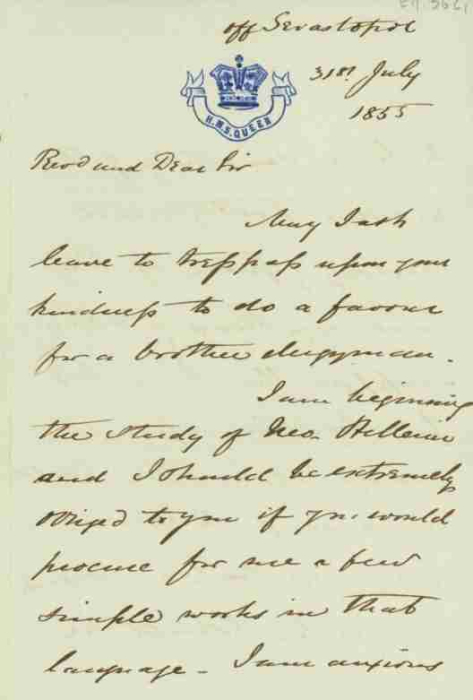 off Sevastopol
H.M.S. QUEEN
31st July
1855
Revd and Dear Sir
May I ask
leave to trespass upon your
kindness to do a favour
for a brother clergyman.
I am beginning
the study of Neo Hellenic
and I should be extremely
obliged to you if you would
procure for me a few
simple works in that
language - I am anxious